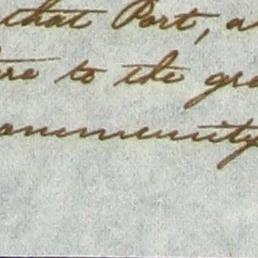 that Port, a
re to the gre
ommunity